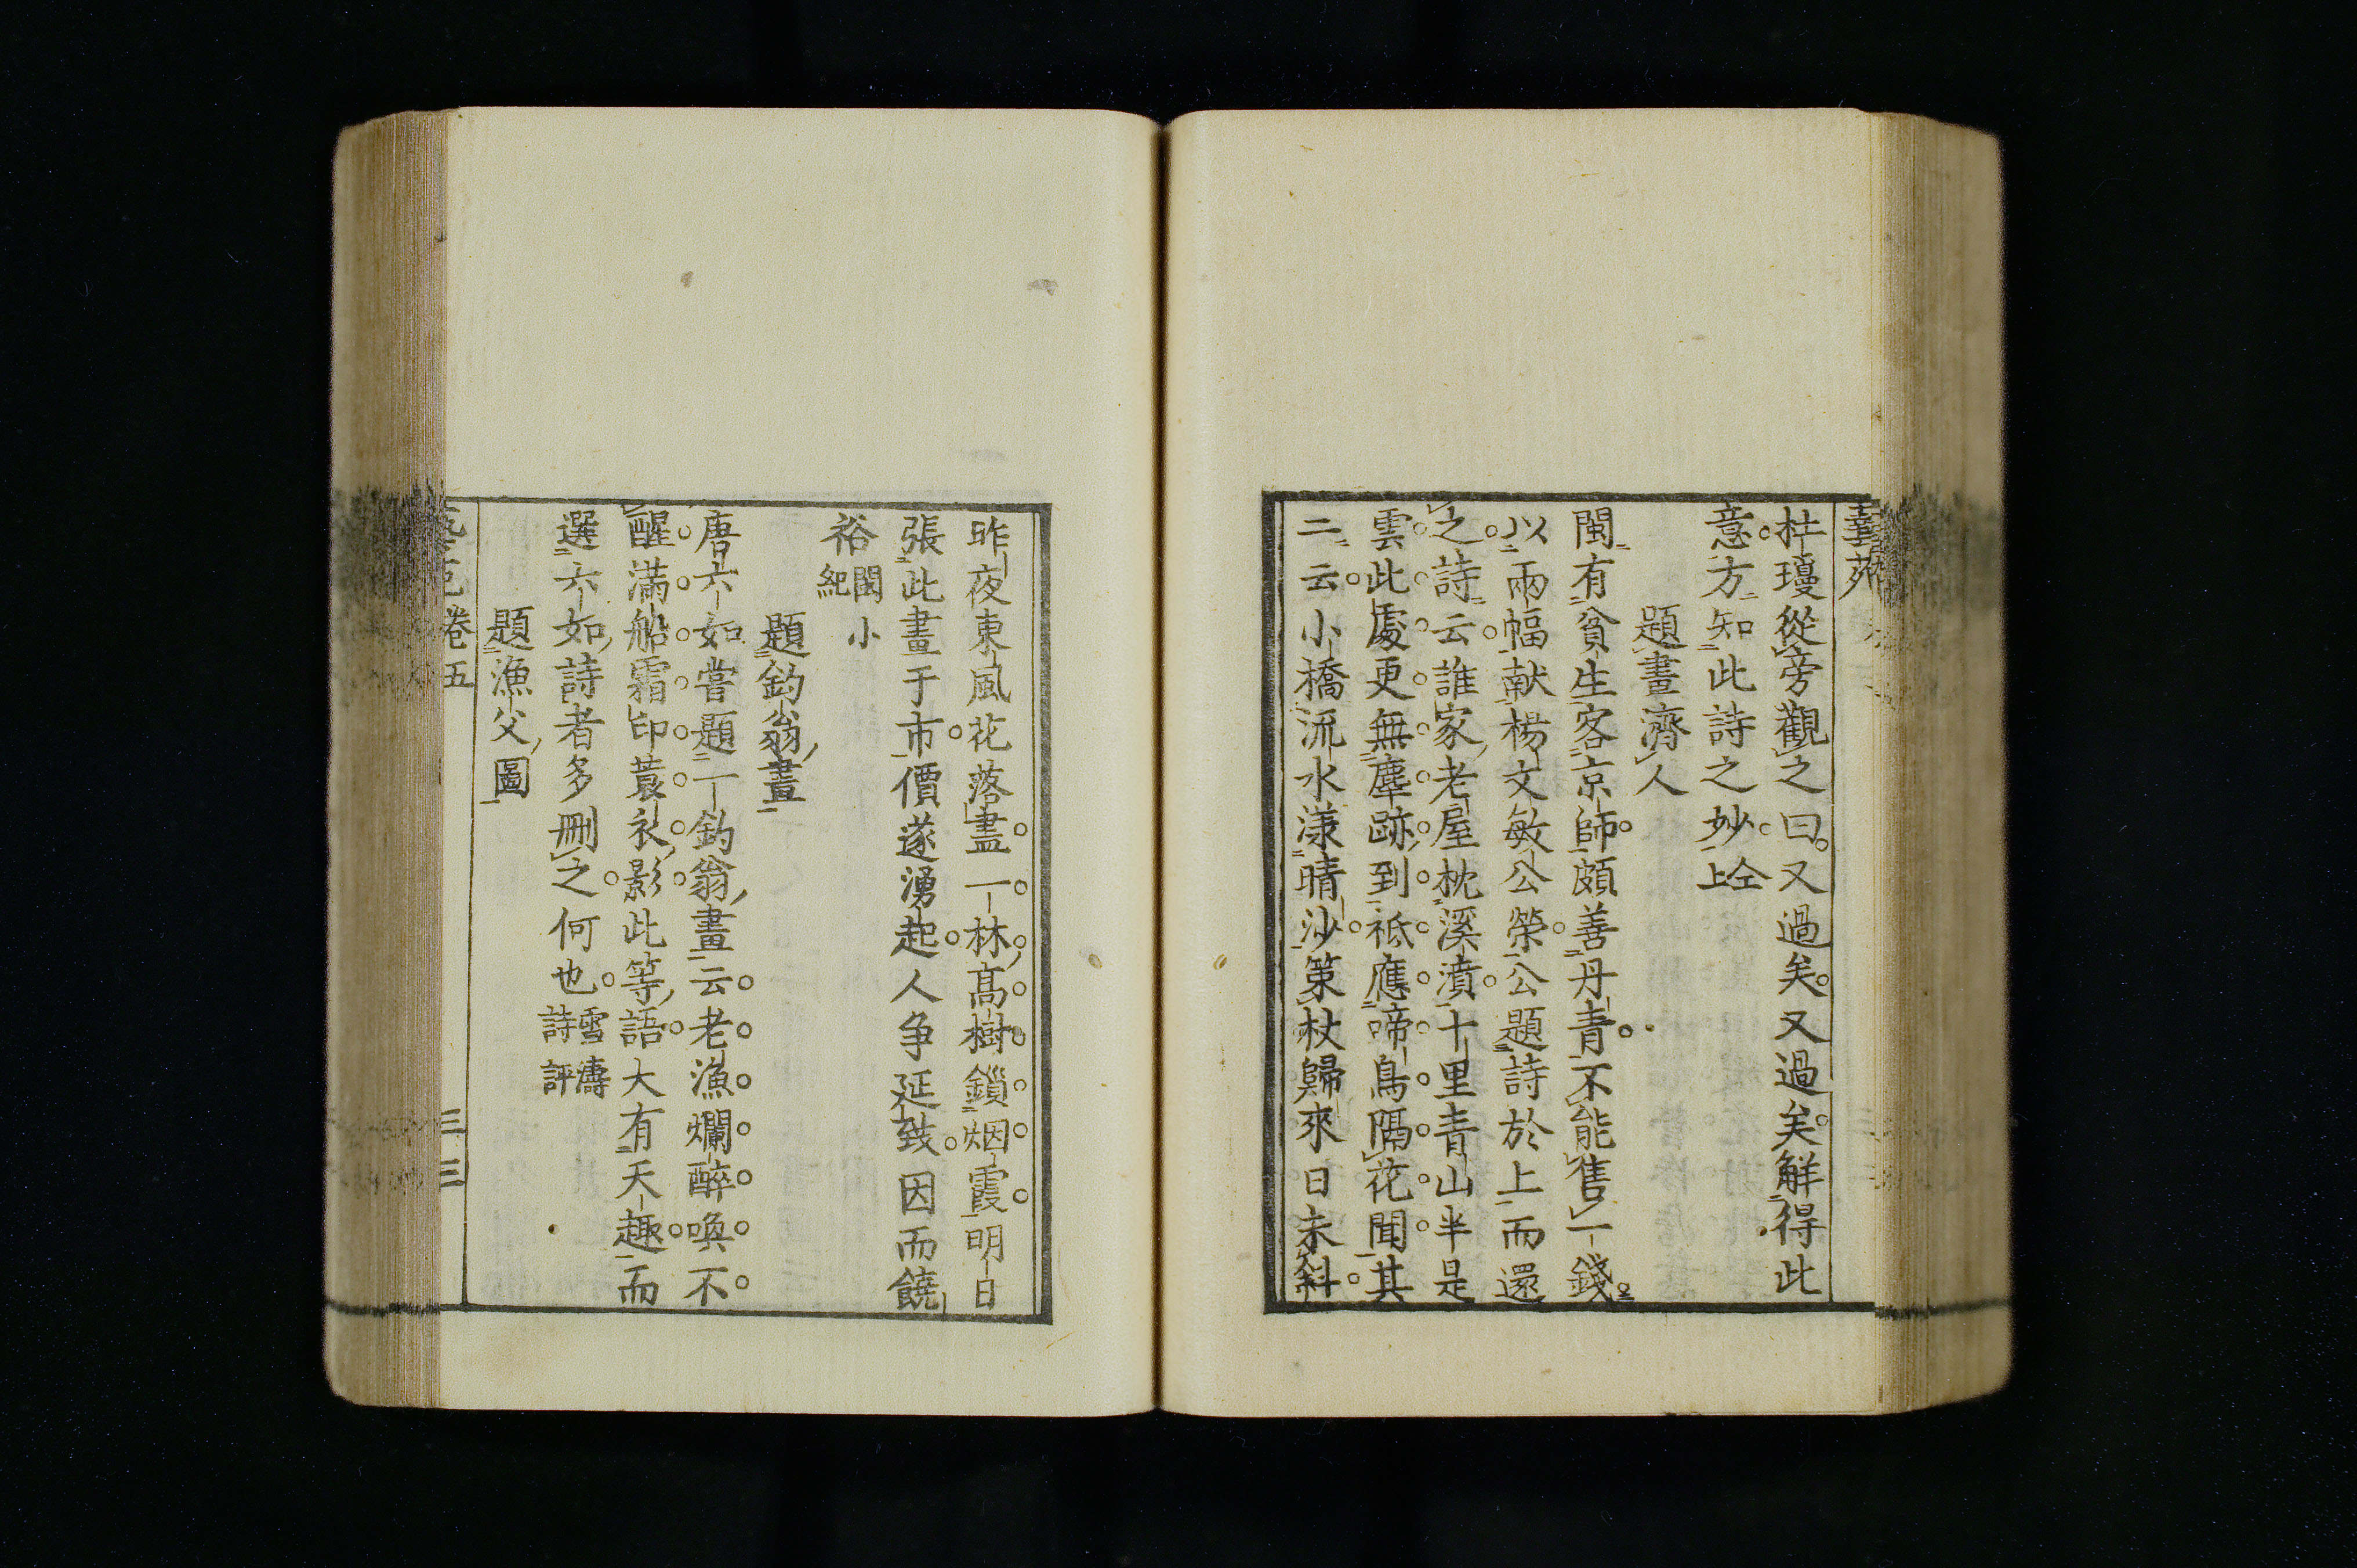 杜瓊從旁觀之曰又過矣又過矣解得此
意方知此詩之妙仝上
題畫濟人
閩有貧生客京師頗善丹青不能售一錢
以兩幅献楊文敏公榮公題詩於上而還
之詩云誰家老屋枕溪濆十里青山半是
雲此處更無塵跡到祗應啼鳥隔花聞其
二云小橋流水漾晴沙策杖歸來日未斜
昨夜東風花落盡一林高樹鎖烟霞明日
張此畫于市價遂湧起人争延致因而饒
裕閩小紀
題釣翁畫
唐六如嘗題一釣翁畫云老漁爛醉喚不
醒滿船霜印蓑衣影此等語大有天趣而
選六如詩者多刪之何也雪濤詩評
題漁父圖
卷五
三三